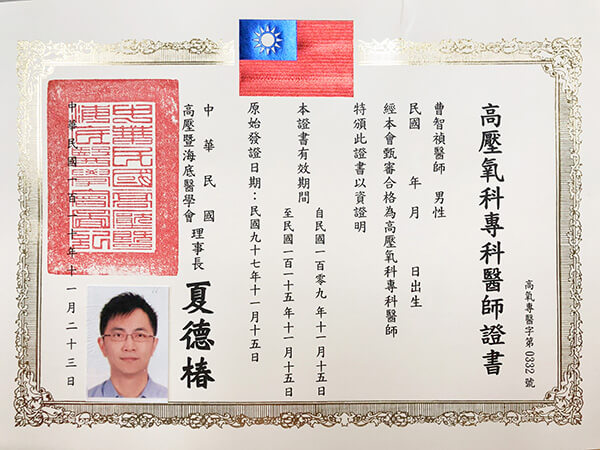 高氣專醫字第 0332 號
高壓氧科專科醫師證書
曹智禎醫師 男性
民國 年 月 日出生
經本會甄審合格為高壓氧科專科醫師
特頒此證書以資證明
本證書有效期間
自民國一百零九年十一月十五日
至民國一百一十五年十一月十五日
原始發證日期：民國九十七年十一月十五日
中華民國
高壓暨海底醫學會 理事長 夏德椿
中華民國 年十一月二十三日